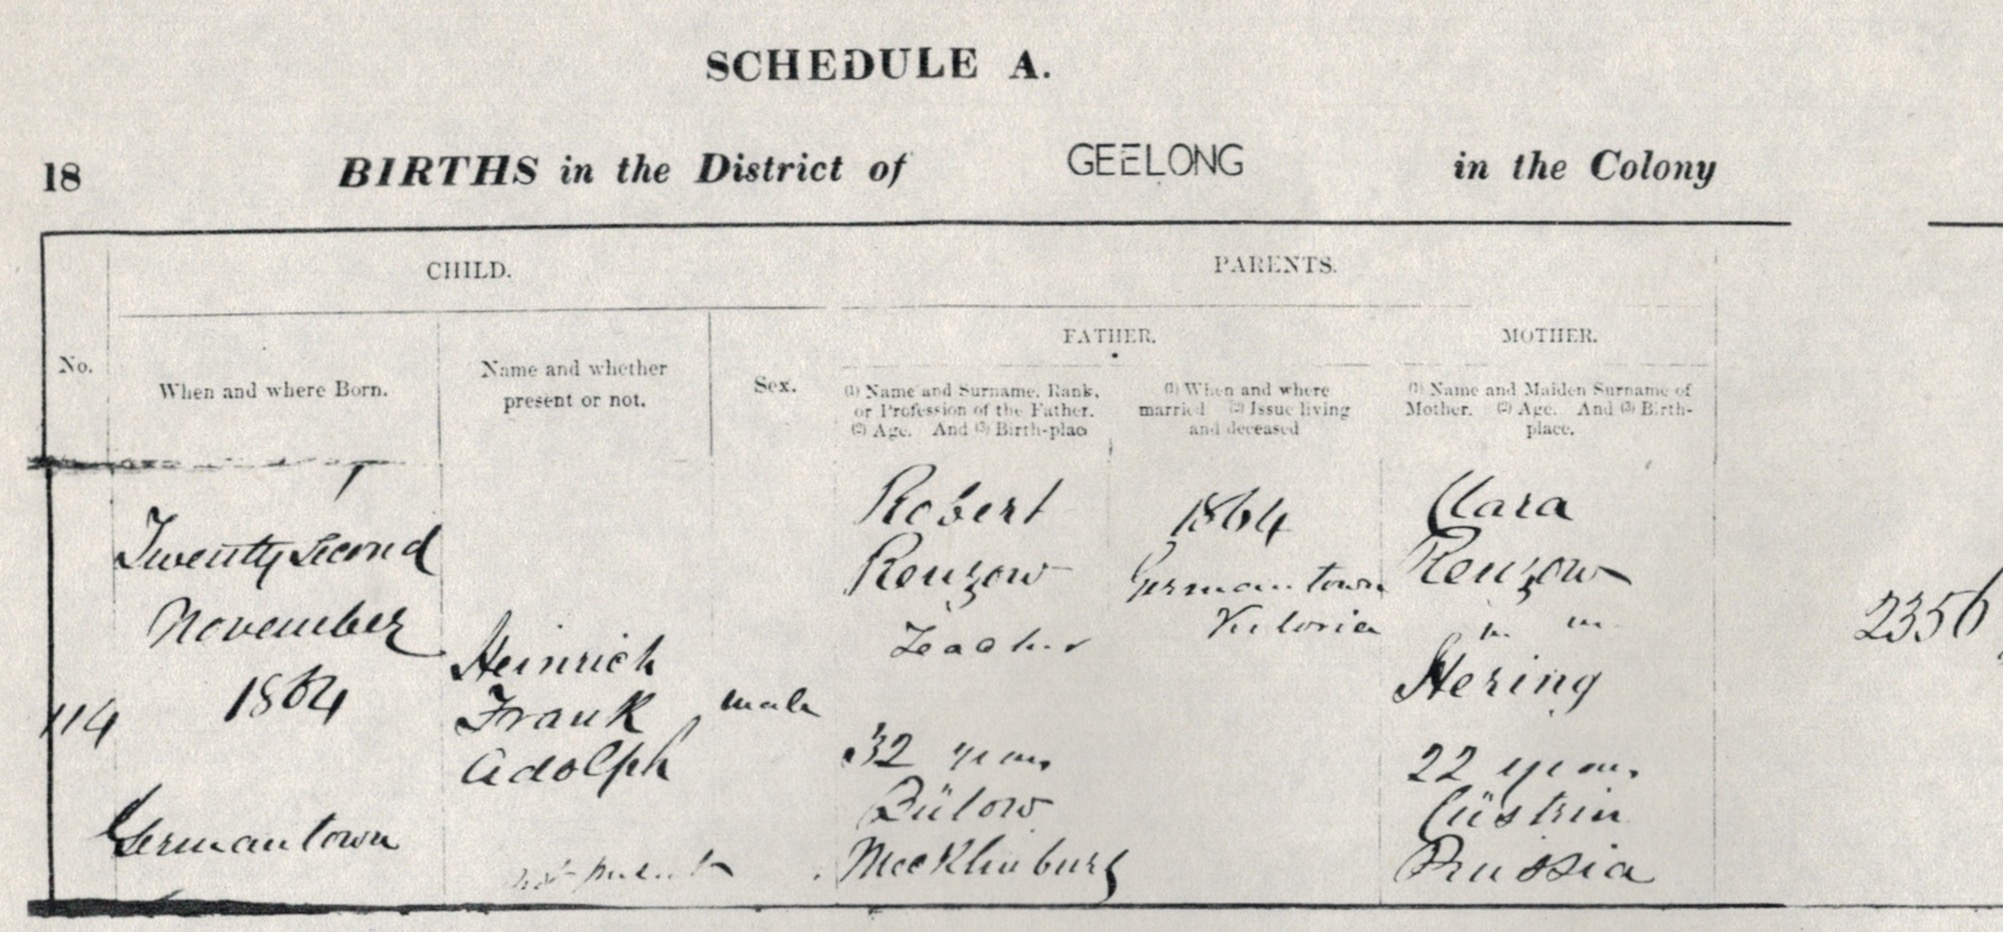 SCHEDULE A.
18 BIRTHS in the District of GEELONG in the Colony
CHILD.
PARENTS.
FATHER.
MOTHER.
No.
When and where Born.
Name and whether
present or not.
Sex.
(1) Name and Surname, Rank,
or Profession of the Father.
(2) Age. And (3) Birth-plac
(1) When and where
married (2) Issue living
and deceased
(1) Name and Maiden Surname of
Mother. (2) Age. And (3) Birth-
place.
114
Twenty second
November
1864
Germantown
Heinrich
Frank
Adolph
not present
male
Robert
Renzow
Teacher
32 years
Bülow
Mecklinburg
1864
Germantown
Victoria
Clara
Renzow
Hering
22 years
Cüstrin
Prussia
2356